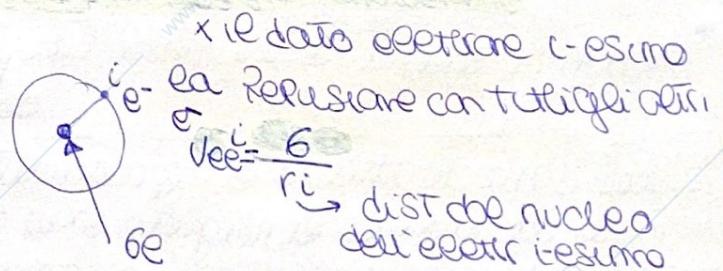 x il dato elettrone i-esimo
i e- la repulsione con tutti gli altri
è Vee^i = 6/ri
→ dist dal nucleo
6e dell'elettr i-esimo